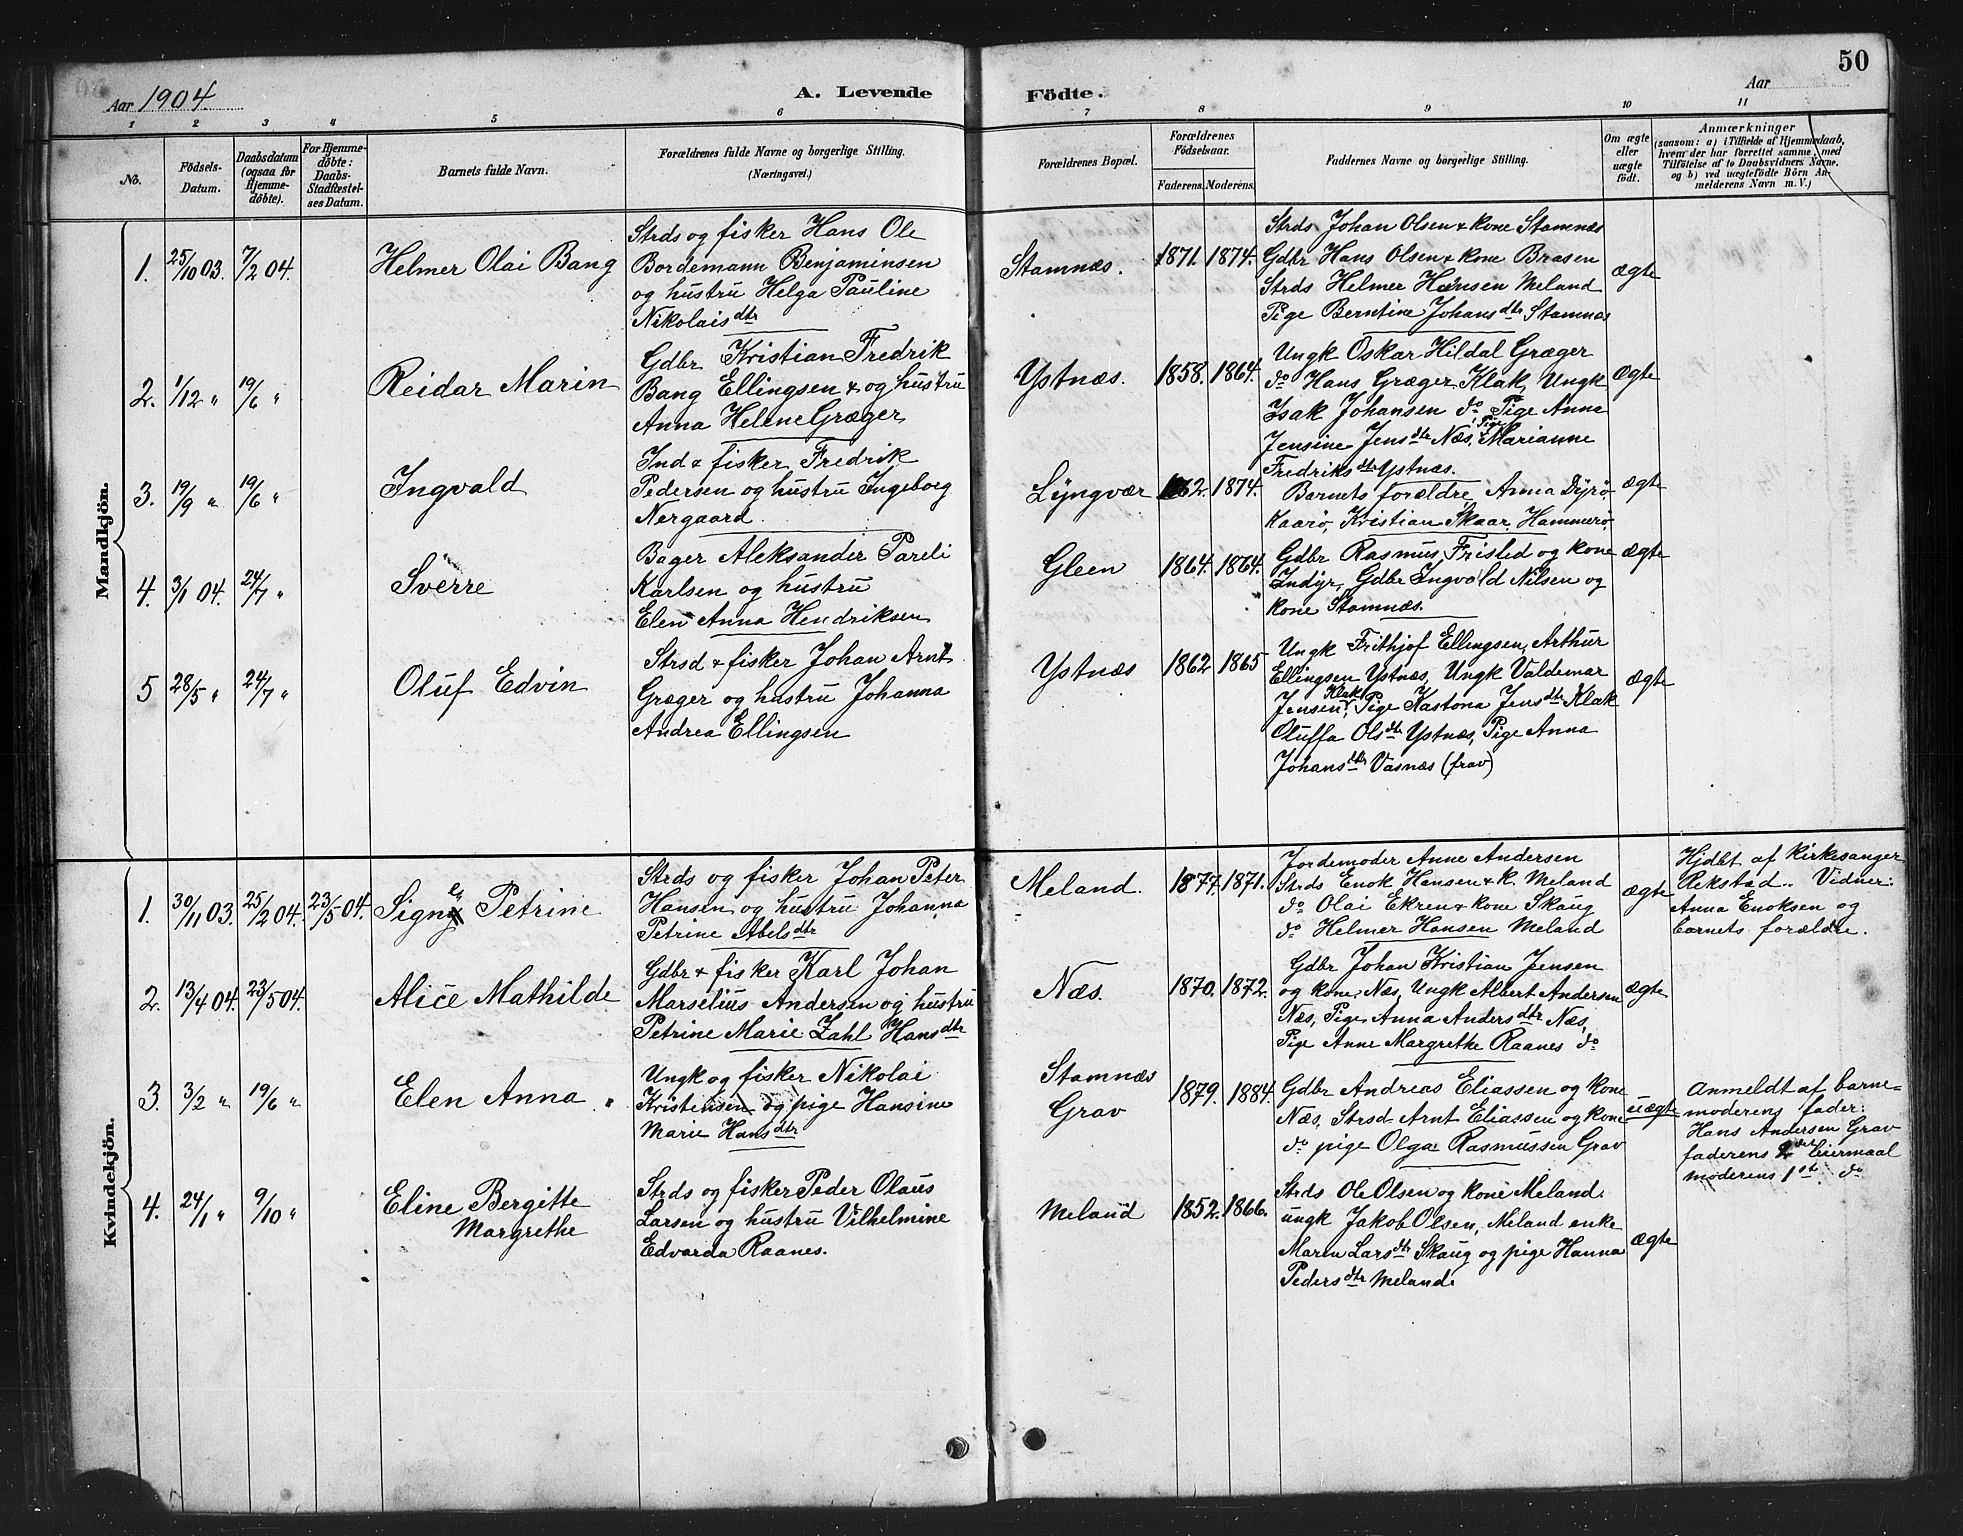 50
Aar 1904.
A. Levende Födte.
Aar
1 2 3 4 5 6 7 8 9 10 11
No.
Födsels-Datum.
Daabsdatum (ogsaa for Hjemme-döbte).
For Hjemme-döbte: Daabs-Stadfæstel-ses Datum.
Barnets fulde Navn.
Forældrenes fulde Navne og borgerlige Stilling.
(Næringsvei.)
Forældrenes Bopæl.
Forældrenes Födselsaar.
Faderens. Moderens.
Faddernes Navne og borgerlige Stilling.
Om ægte eller uægte födt.
Anmærkninger
(saasom: a) i Tilfælde af Hjemmedaab,
hvem der har forrettet samme, med
Tilföielse af to Daabsvidners Navne,
og b) ved uægtefödte Börn An-
melderens Navn m. V.)
Mandkjön.
1. 25/10 03. 7/2 04. Helmer Olai Bang
Strds og fisker Hans Ole
Bordemann Benjaminsen
og hustru Helga Pauline
Nikolaisdtr
Stamnæs. 1871. 1874.
Strds Johan Olsen & kone Stamnæs
Gdbr Hans Olsen & kone Brasen
Strds Helmer Hansen Meland
Pige Berntine Johansdtr Stamnæs
ægte
2. 1/12 " 19/6 " Reidar Marin
Gdbr Kristian Fredrik
Bang Ellingsen & og hustru
Anna Helene Græger
Ystnæs. 1858. 1864.
Ungk Oskar Hildal Græger
do Hans Græger Klak, Ungk
Isak Johansen do, Pige Anne
Jensine Jensdtr Næs, Pige Marianne
Fredriksdtr Ystnæs.
ægte
3. 19/9 " 19/6 " Ingvald
Ind & fisker Fredrik
Pedersen og hustru Ingeborg
Nergaard.
Lyngvær 1862. 1874.
Barnets forældre, Anna Dyrö
Kaarö, Kristian Skaar, Hammerö
ægte
4. 3/1 04. 24/7 " Sverre
Bager Aleksander Pareli
Karlsen og hustru
Elen Anna Hendriksen
Gleen 1864. 1864.
Gdbr Rasmus Fristed og kone
Indyr, Gdbr Ingvold Nilsen og
kone Stamnæs.
ægte
5 28/5 " 24/7 " Oluf Edvin
Strsd & fisker Johan Arnt
Græger og hustru Johanna
Andrea Ellingsen
Ystnæs 1862 1865
Ungk Frithjof Ellingsen, Arthur
Ellingsen Ystnæs, Ungk Valdemar
Jensen Klak, Pige Kastona Jensdtr Klak
Oluffa Olsdtr Ystnæs, Pige Anna
Johansdtr Vasnæs (frav)
ægte
Kvindekjön.
1. 30/11 03. 25/2 04. 23/5 04. Signe Petrine
Strds og fisker Johan Peter
Hansen og hustru Johanna
Petrine Abelsdtr
Meland. 1877. 1871.
Jordemoder Anne Andersen
Strds Enok Hansen & k. Meland
do Olai Ekren & kone Skaug
do Helmer Hansen Meland
ægte
Hjdbt af kirkesanger
Rekstad. Vidner:
Anna Enoksen og
barnets forældre.
2. 13/4 04. 23/5 04. Alice Mathilde
Gdbr & fisker Karl Johan
Marselius Andersen og hustru
Petrine Marie Zahl Hansdtr
Næs. 1870. 1872.
Gdbr Johan Kristian Jensen
og kone, Næs, Ungk Albert Andersen
Næs, Pige Anna Andersdtr Næs,
Pige Anne Margrethe Raanes do
ægte
3. 3/2 " 19/6 " Elen Anna
Ungk og fisker Nikolai
Kristensen og pige Hansine
Marie Hansdtr
Stamnæs
Grav
1879. 1884.
Gdbr Andreas Eliassen og kone
Næs, Strsd Arnt Eliassen og kone
do pige Olga Rasmussen Grav
uægte
Anmeldt af barne-
moderens fader:
Hans Andersen Grav
faderens 2det leiermaal
moderens 1ste do
4. 24/1 " 9/10 " Eline Bergitte
Margrethe
Strds og fisker Peder Olaus
Larsen og hustru Vilhelmine
Edvarda Raanes.
Meland 1852. 1866.
Strds Ole Olsen og kone Meland
ungk Jakob Olsen, Meland enke
Maren Larsdtr Skaug og pige Hanna
Pedersdtr Meland.
ægte